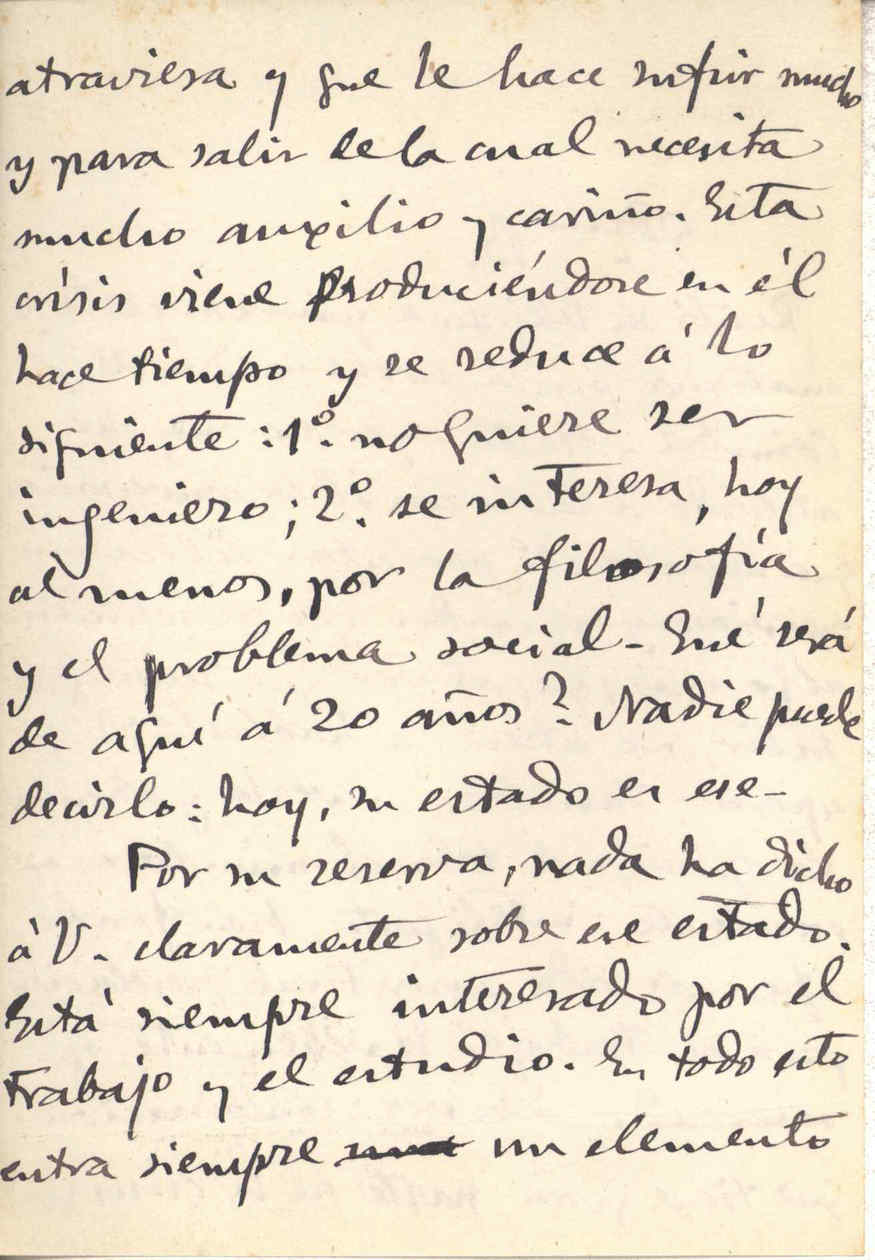 atraviesa y que le hace sufrir mucho
y para salir de la cual necesita
mucho auxilio y cariño. Esta
crisis viene produciéndose en él
hace tiempo y se reduce á lo
siguiente: 1º. no quiere ser
ingeniero; 2º. se interesa, hoy
al menos, por la filosofía
y el problema social - Qué será
de aquí á 20 años? Nadie puede
decirlo: hoy, su estado es ese -
Por su reserva, nada ha dicho
á V. claramente sobre ese estado.
Está siempre interesado por el
trabajo y el estudio. En todo esto
entra siempre un elemento